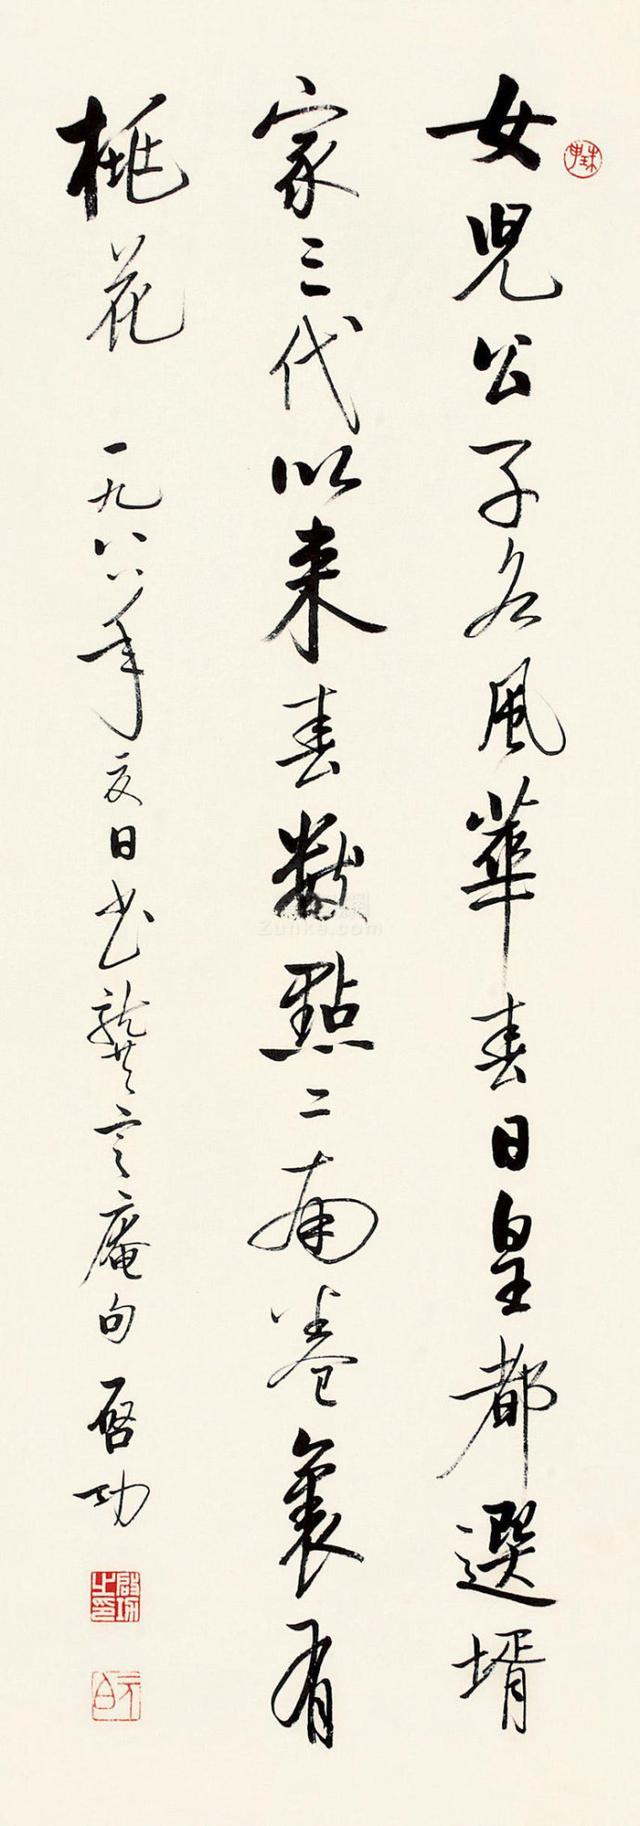 女兒公子各風華春日皇都選壻
家三代以來春數點二南卷裏有
桃花 一九八八年夏日書龔定庵句 啓功
啟功之印
元白
Zunke.com